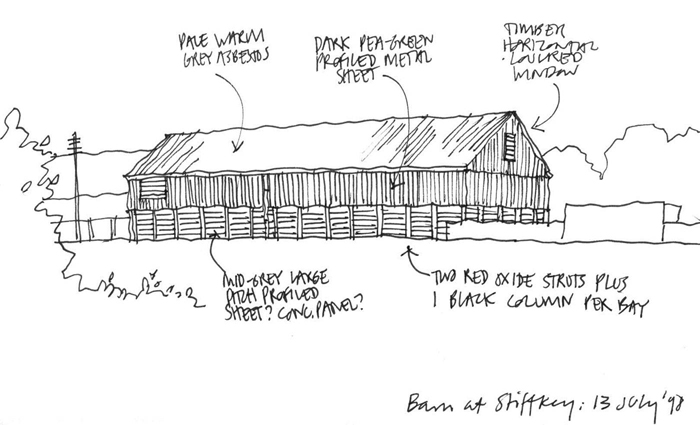 PALE WARM
GREY ASBESTOS
DARK PEA-GREEN
PROFILED METAL
SHEET
TIMBER
HORIZONTAL
LOUVRED
WINDOW
MID-GREY LARGE
PITCH PROFILED
SHEET? CONC. PANEL?
TWO RED OXIDE STRUTS PLUS
1 BLACK COLUMN PER BAY
Barn at Stiffkey: 13 July '98